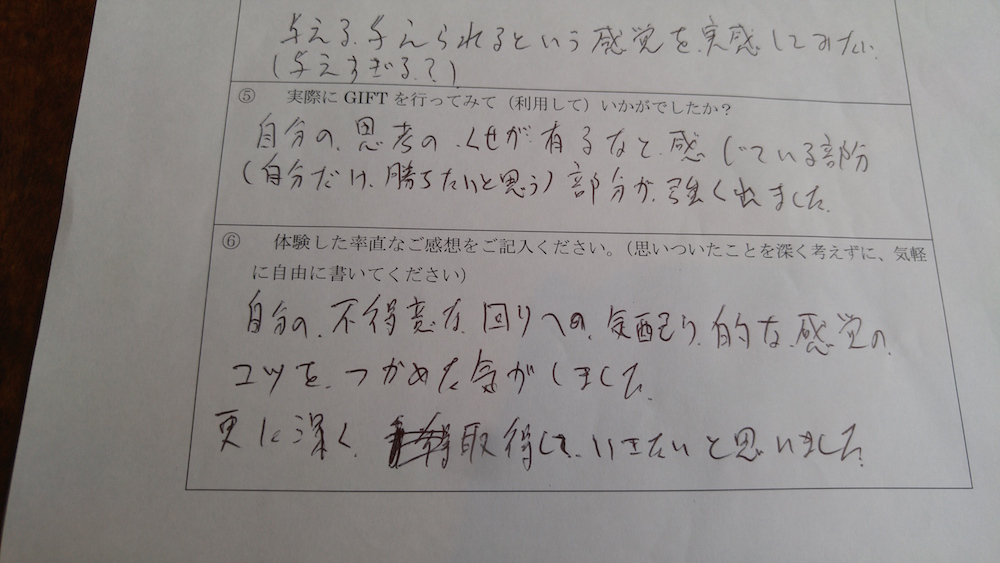 与える、与えられるという感覚を、実感してみたい
(与えすぎる?)
⑤ 実際に GIFT を行ってみて(利用して)いかがでしたか?
自分の、思考の、くせが有るなと、感じている部分
(自分だけ、勝ちたいと思う)部分が、強く出ました。
⑥ 体験した率直なご感想をご記入ください。(思いついたことを深く考えずに、気軽
に自由に書いてください)
自分の、不得意な、回りへの、気配り、的な、感覚の、
コツを、つかめた気がしました。
更に深く、取得して、いきたいと思いました。